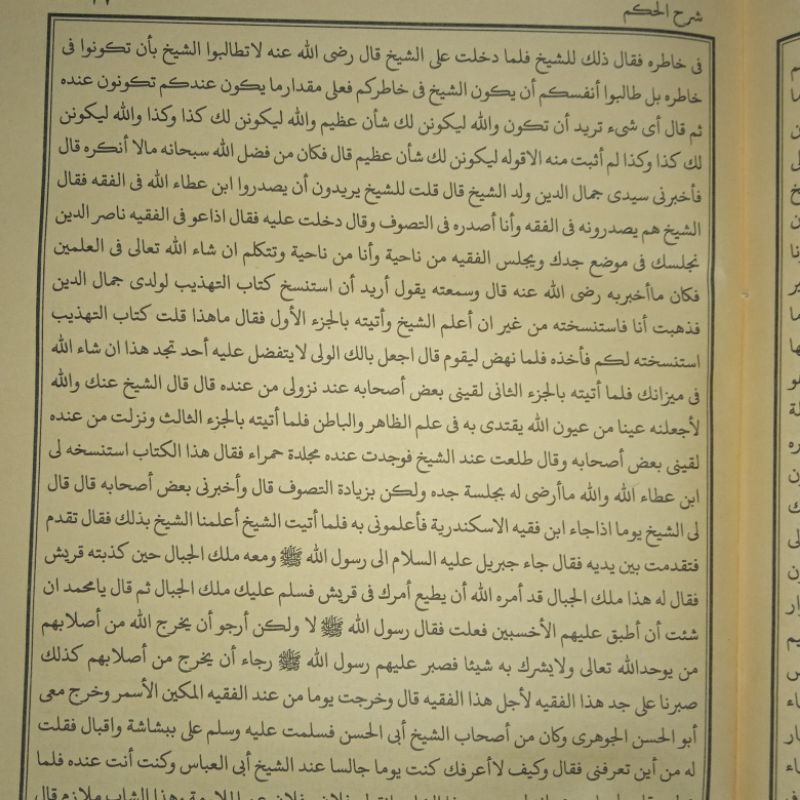 شرح الحكم
فى خاطره فقال ذلك للشيخ فلما دخلت على الشيخ قال رضى الله عنه لاتطالبوا الشيخ بأن تكونوا فى
خاطره بل طالبوا أنفسكم أن يكون الشيخ فى خاطركم فعلى مقدارما يكون عندكم تكونون عنده
ثم قال أى شىء تريد أن تكون والله ليكونن لك شأن عظيم والله ليكونن لك كذا وكذا والله ليكونن
لك كذا وكذا لم أثبت منه الاقوله ليكونن لك شأن عظيم قال فكان من فضل الله سبحانه مالا أنكره قال
فأخبرنى سيدى جمال الدين ولد الشيخ قال قلت للشيخ يريدون أن يصدروا ابن عطاء الله فى الفقه فقال
الشيخ هم يصدرونه فى الفقه وأنا أصدره فى التصوف وقال دخلت عليه فقال اذاعو فى الفقيه ناصر الدين
نجلسك فى موضع جدك ويجلس الفقيه من ناحية وأنا من ناحية وتتكلم ان شاء الله تعالى فى العلمين
فكان ماأخبربه رضى الله عنه قال وسمعته يقول أريد أن استنسخ كتاب التهذيب لولدى جمال الدين
فذهبت أنا فاستنسخته من غير ان أعلم الشيخ وأتيته بالجزء الأول فقال ماهذا قلت كتاب التهذيب
استنسخته لكم فأخذه فلما نهض ليقوم قال اجعل بالك الولى لايتفضل عليه أحد تجد هذا ان شاء الله
فى ميزانك فلما أتيته بالجزء الثانى لقينى بعض أصحابه عند نزولى من عنده قال قال الشيخ عنك والله
لأجعلنه عينا من عيون الله يقتدى به فى علم الظاهر والباطن فلما أتيته بالجزء الثالث ونزلت من عنده
لقينى بعض أصحابه وقال طلعت عند الشيخ فوجدت عنده مجلدة حمراء فقال هذا الكتاب استنسخه لى
ابن عطاء الله والله ماأرضى له بجلسة جده ولكن بزيادة التصوف قال وأخبرنى بعض أصحابه قال قال
لى الشيخ يوما اذاجاء ابن فقيه الاسكندرية فأعلمونى به فلما أتيت الشيخ أعلمنا الشيخ بذلك فقال تقدم
فتقدمت بين يديه فقال جاء جبريل عليه السلام الى رسول الله ﷺ ومعه ملك الجبال حين كذبته قريش
فقال له هذا ملك الجبال قد أمره الله أن يطيع أمرك فى قريش فسلم عليك ملك الجبال ثم قال يامحمد ان
شئت أن أطبق عليهم الأخسبين فعلت فقال رسول الله ﷺ لا ولكن أرجو أن يخرج الله من أصلابهم
من يوحدالله تعالى ولايشرك به شيئا فصبر عليهم رسول الله ﷺ رجاء أن يخرج من أصلابهم كذلك
صبرنا على جد هذا الفقيه لأجل هذا الفقيه قال وخرجت يوما من عند الفقيه المكين الأسمر وخرج معى
أبو الحسن الجوهرى وكان من أصحاب الشيخ أبى الحسن فسلمت عليه وسلم على ببشاشة واقبال فقلت
له من أين تعرفنى فقال وكيف لاأعرفك كنت يوما جالسا عند الشيخ أبى العباس وكنت أنت عنده فلما